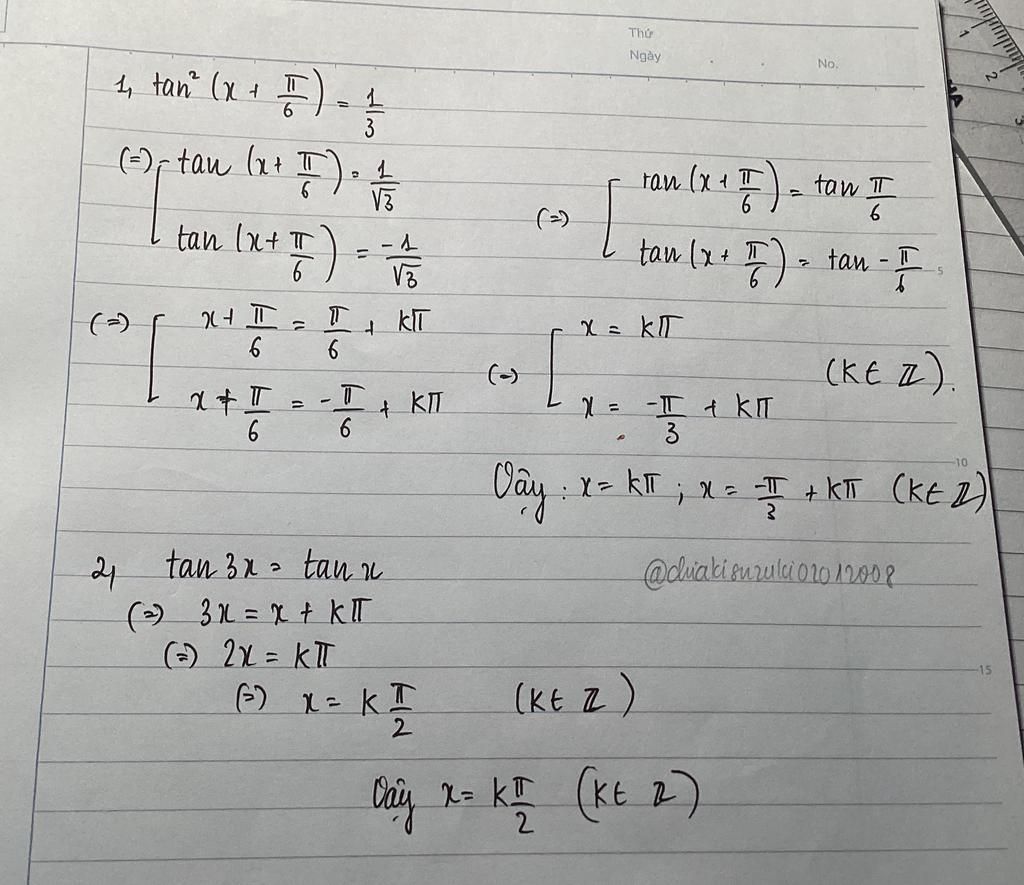 Thứ
Ngày
No.
1, tan² (x + π/6) = 1/3
(=) [ tan (x + π/6) = 1/√3
tan (x + π/6) = -1/√3
(=) [ ran (x + π/6) = tan π/6
tan (x + π/6) = tan - π/6
5
(=) [ x + π/6 = π/6 + kπ
x + π/6 = -π/6 + kπ
(=) [ x = kπ
x = -π/3 + kπ
(k ∈ ℤ).
10
Vậy : x = kπ ; x = -π/3 + kπ (k ∈ ℤ)
2, tan 3x = tan x
@chiakisuzuki02012008
(=) 3x = x + kπ
(=) 2x = kπ
15
(=) x = k π/2 (k ∈ ℤ)
Vậy x = k π/2 (k ∈ ℤ)
1
2
3